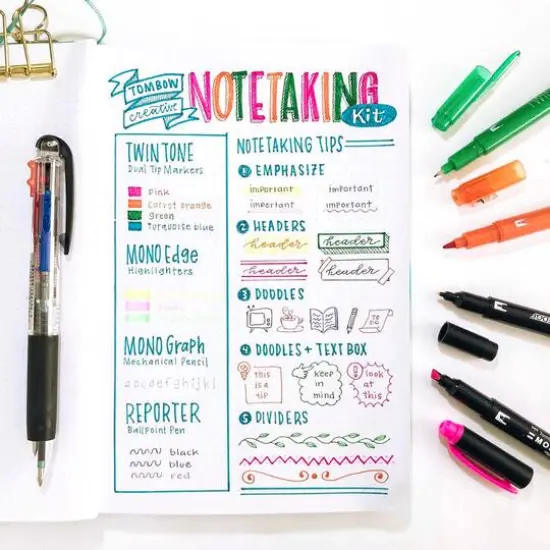 TOMBOW
creative
NOTETAKING
Kit
TWINTONE
Dual Tip Markers
Pink
Carrot orange
Green
Turquoise blue
MONO Edge
Highlighters
MONO Graph
Mechanical Pencil
abcdefghijkl
REPORTER
Ballpoint Pen
black
blue
red
NOTETAKING TIPS
1 EMPHASIZE
important important
important important
2 HEADERS
header header
header header
3 DOODLES
TO
DO
4 DOODLES + TEXT BOX
this
is a
tip
keep
in
mind
look
at
this
5 DIVIDERS